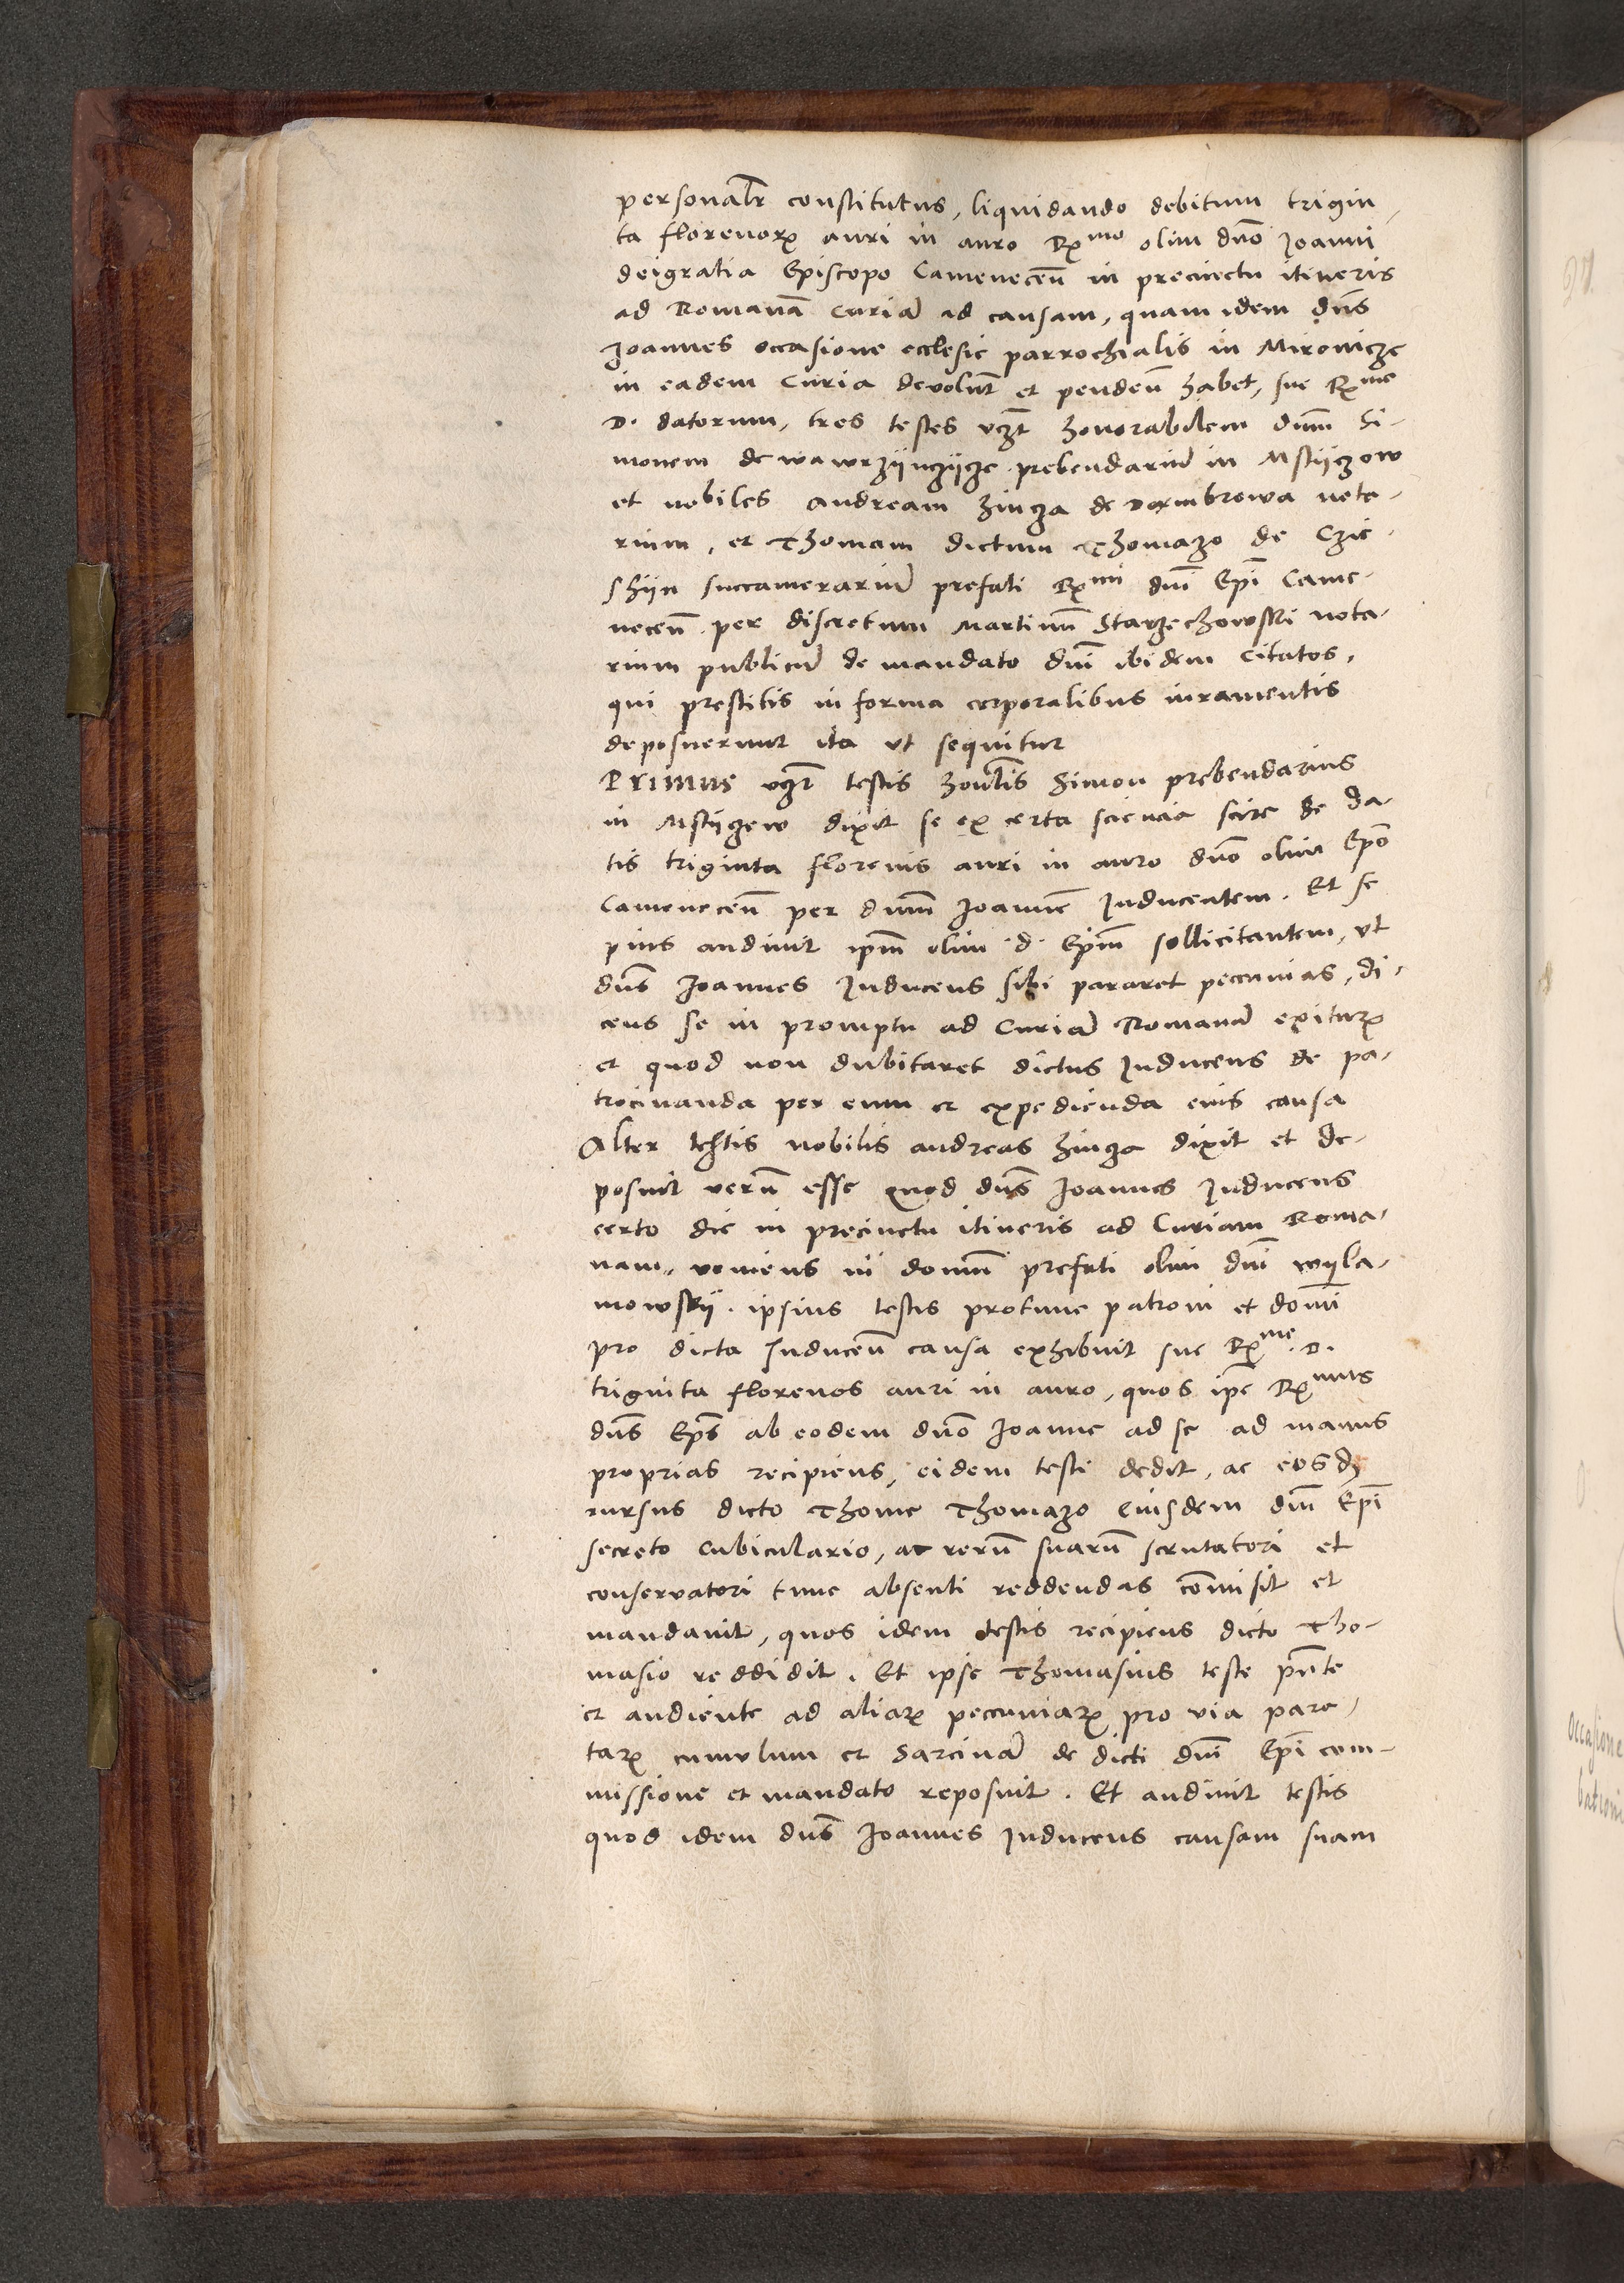 personalr constitutus, liquidando debitum trigin-
ta florenorꝝ auri in auro Rmo olim dno Joanni
deigratia Episcopo Camenecen̄ in precinctu itineris
ad Romanā Curiā ad causam, quam idem dns
Joannes occasione ecclesie parrochialis in Mironicze
in eadem Curia devolut̄ et penden̄ habet, sue Rme
D. datorum, tres testes vczt honorabilem dnm Si-
monem de wawrzijnczijcze prebendariū in Mstijczow
et nobiles Andream hincza de Dambrowa nota-
rium, et Thomam dictum Thomazo de Czie-
shijn succamerariū prefati Rmi dni Epi Came-
necen̄ per discretum Martinū Starzechowski nota-
rium publicū de mandato dni ibidem citatos,
qui prestitis in forma corporalibus iuramentis
deposuerunt ita vt sequitur
Primus vczt testis honlis Simon prebendarius
in Mstijczow dixit se ex certa sciencia scire de da-
tis triginta florenis auri in auro dno olim Epo
Camenecen̄ per dnm Joannē Inducentem. Et se
pius audiuit ipm olim d. Epm sollicitantem, vt
dns Joannes Inducens sibi pararet peccunias, di-
cens se in promptu ad Curiā Romanā exiturꝝ
et quod non dubitaret dictus Inducens de pa-
trocinanda per eum et expedienda eius causa
Alter testis nobilis andreas hincza dixit et de-
posuit verū esse quod dns Joannes Inducens
certo die in precinctu itineris ad Curiam Roma-
nam, veniens in domū prefati olim dni wijla-
mowskij. ipsius testis protunc patroni et domi
pro dicta Inducen̄ causa exhibuit sue Rme. D.
triginta florenos auri in auro, quos ipe Rmus
dns Eps ab eodem dno Joanne ad se ad manus
proprias recipiens, eidem testi dedit, ac eosdꝫ
rursus dicto Thome Thomazo eiusdem dni Epi
secreto cubiculario, ac rerū suarū scrutatori et
conservatori tunc absenti reddendas comisit et
mandauit, quos idem testis recipiens dicto Tho-
masio reddidit. Et ipse Thomasius teste pnte
et audiente ad aliarꝝ peccuniarꝝ pro via para-
tarꝝ cumulum et Sarcinā de dicti dni Epi com-
missione et mandato reposuit. Et audiuit testis
quod idem dns Joannes Inducens causam suam
occasione